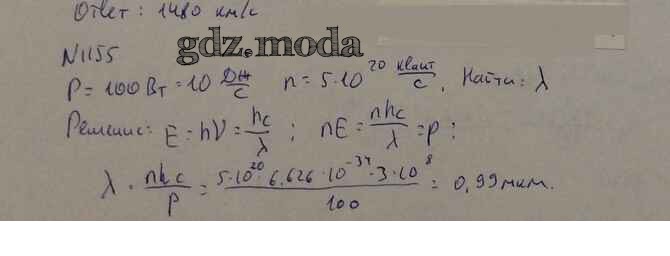 Ответ: 1480 км/с
gdz.moda
N1155
P = 100 Вт = 10 Дж/с n = 5·10^20 квант/с. Найти: λ
Решение: E = hν = hc/λ ; nE = nhc/λ = P :
λ = nhc/P = 5·10^20·6,626·10^-34·3·10^8/100 = 0,99 мкм.